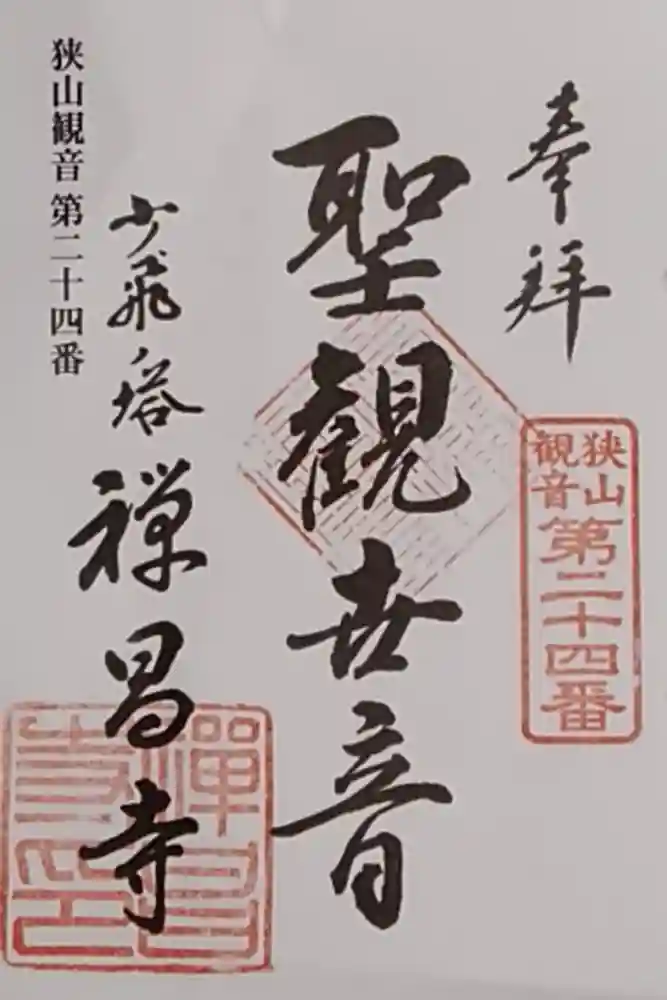 奉拝
狭山
観音
第二十四番
聖観世音
少飛の塔
禅昌寺
禅昌
寺印
狭山観音 第二十四番